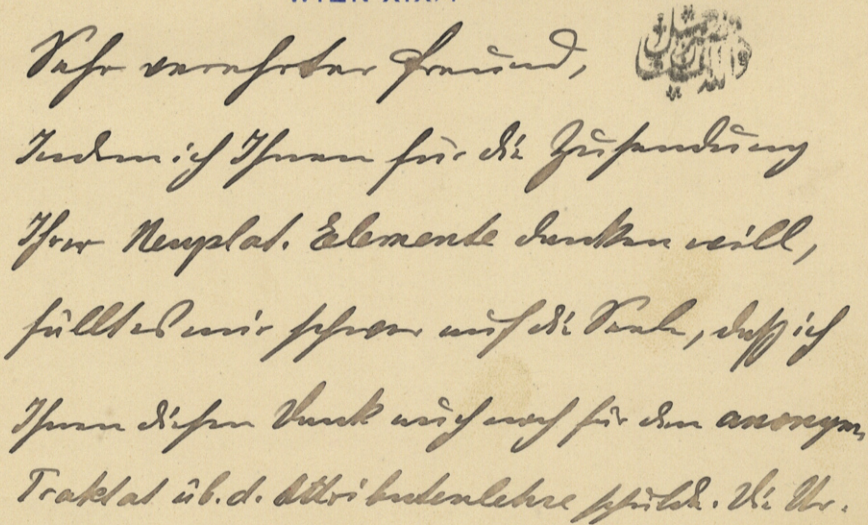 Sehr verehrter Freund,
Indem ich Ihnen für die Zusendung
Ihrer Neuplat. Elemente danken will,
fällt es mir schwer auf die Seele, daß ich
Ihnen diesen Dank auch noch für den anonym.
Traktat üb. d. Attributenlehre schulde. Die Ur-